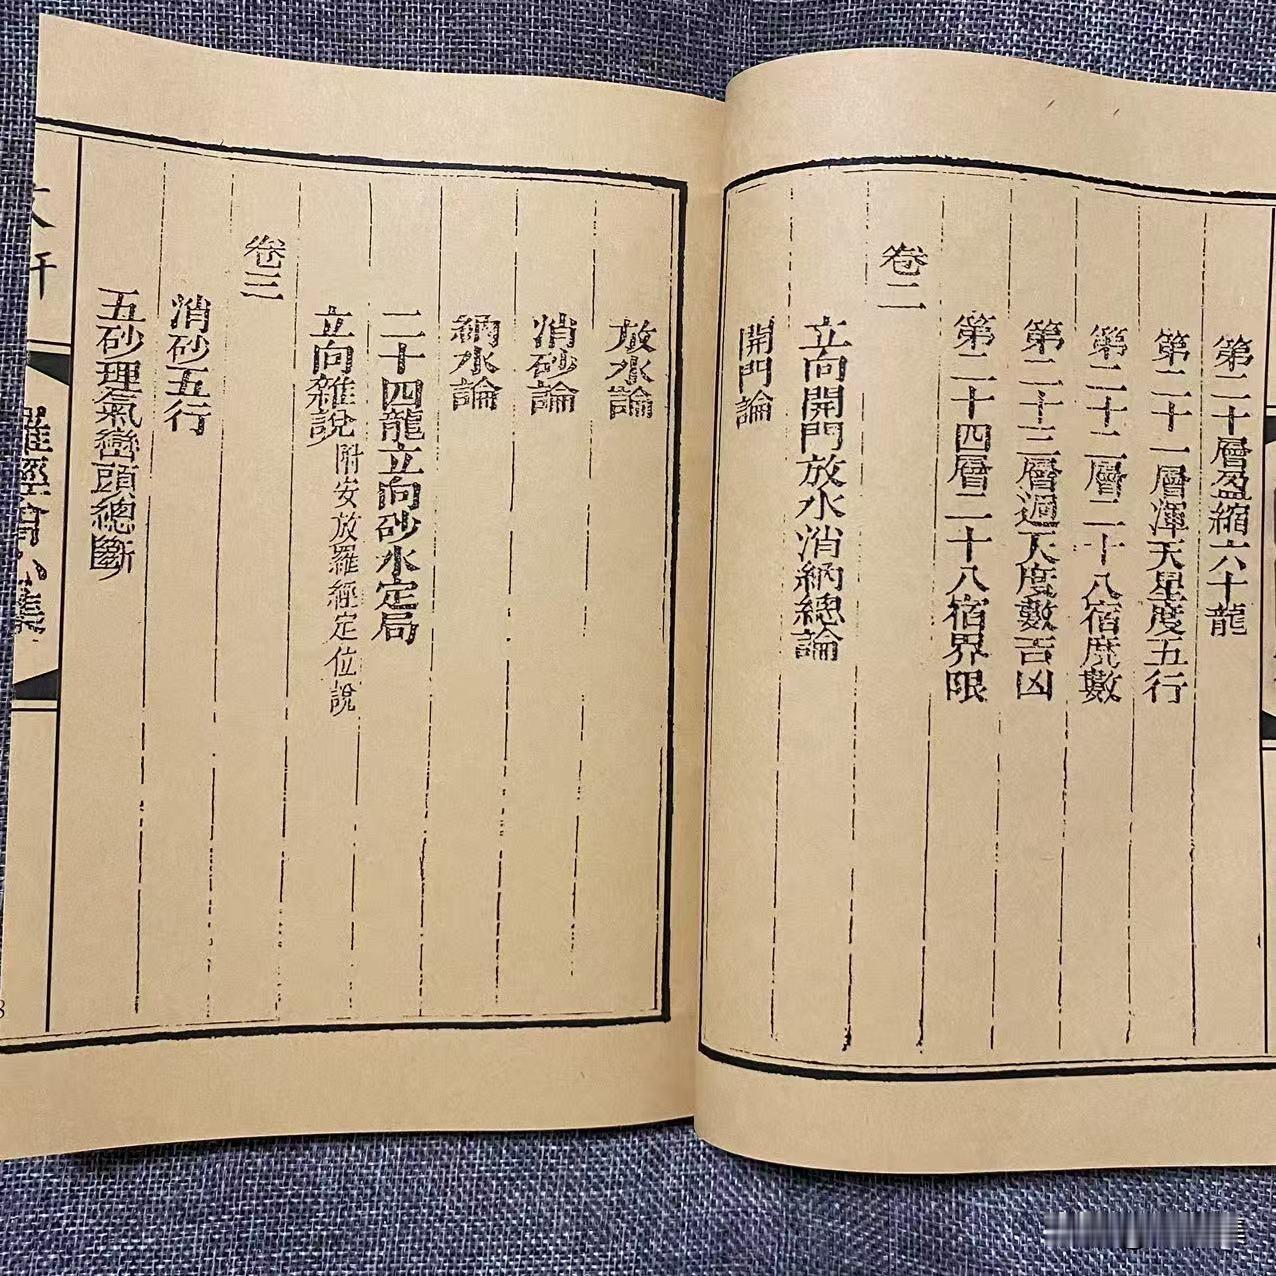 第二十層盈縮六十龍
第二十一層渾天星度五行
第二十二層二十八宿度數
第二十三層週天度數吉凶
第二十四層二十八宿界限
卷二
立向開門放水消納總論
開門論
放水論
消砂論
納水論
二十四龍立向砂水定局
立向雜說附安放羅經定位說
卷三
消砂五行
五砂理氣巒頭總斷